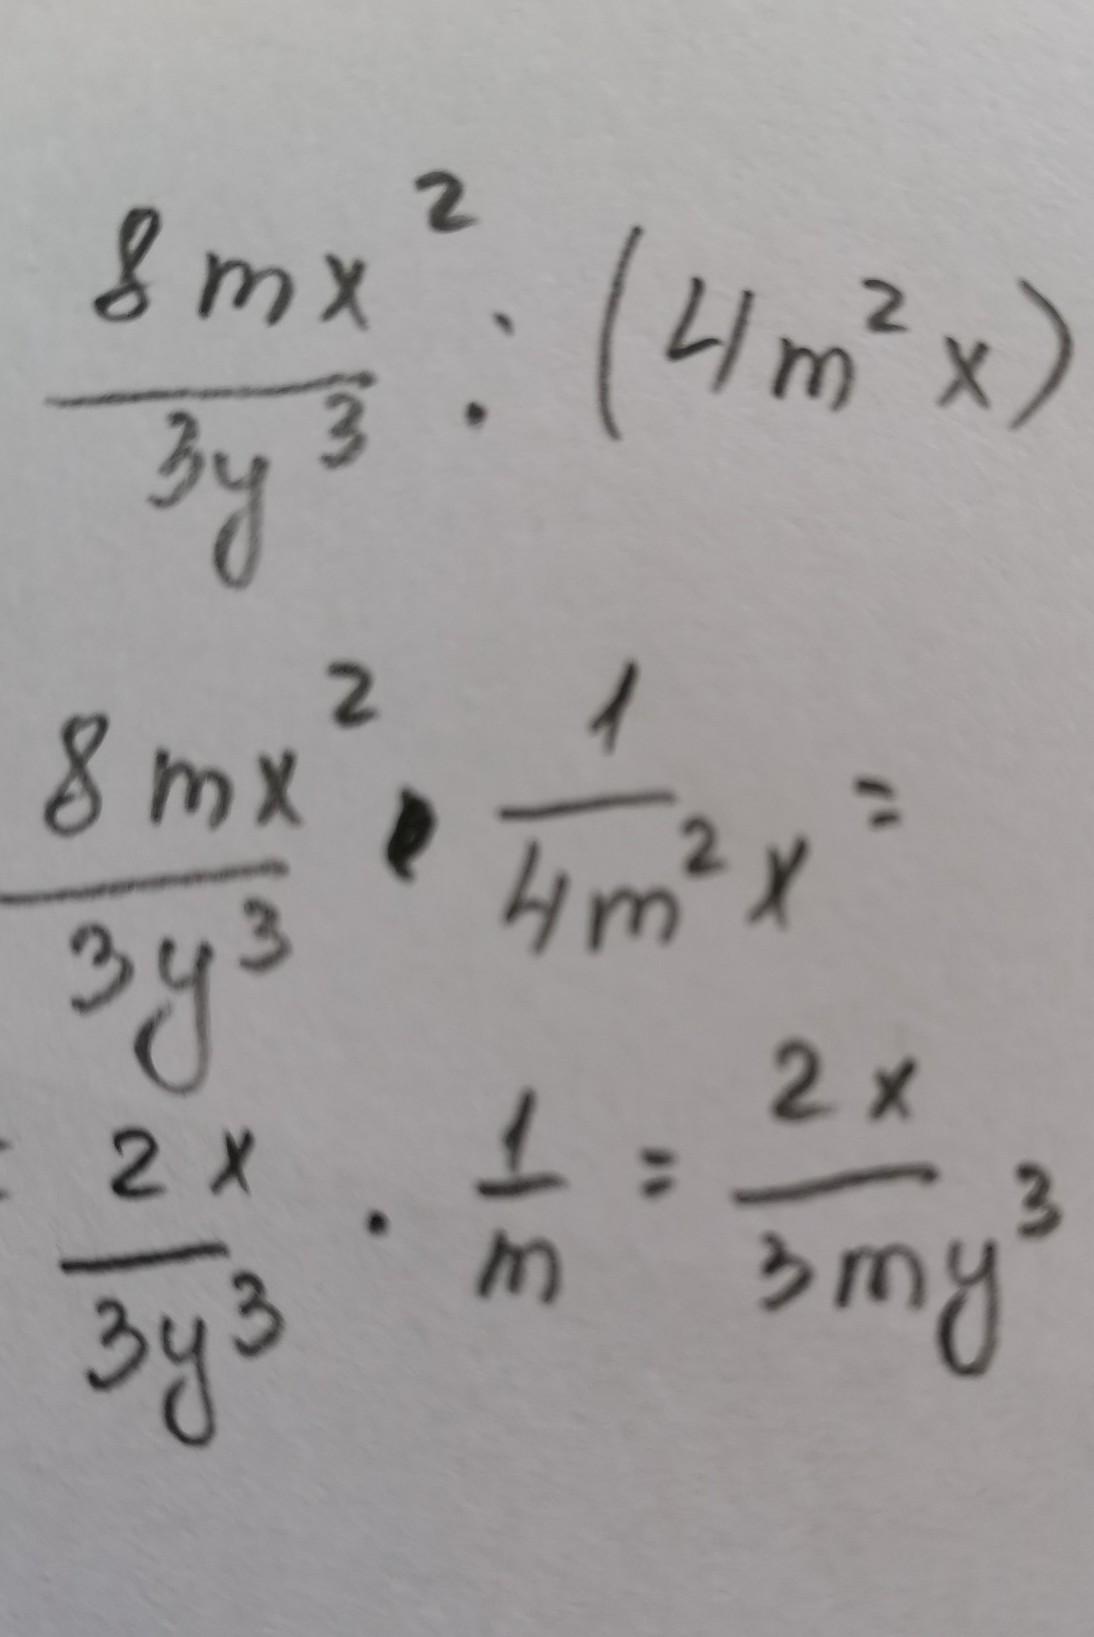 8mx²/3y³ : (4m²x)
8mx²/3y³ · 1/4m²x =
= 2x/3y³ · 1/m = 2x/3my³